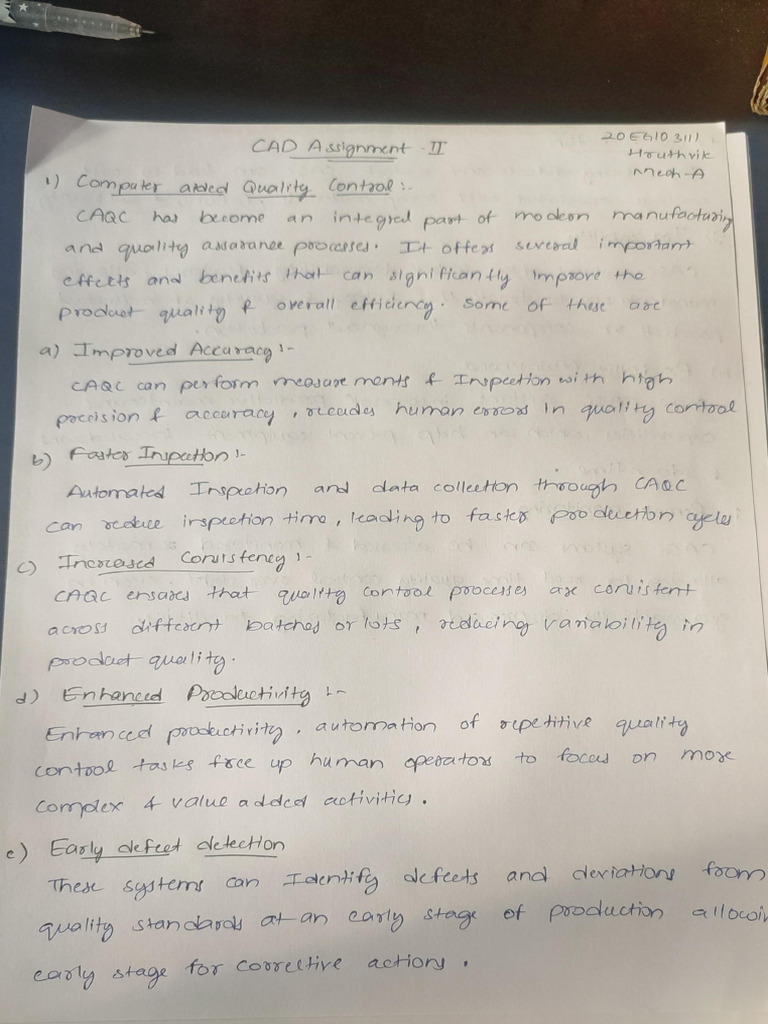 CAD Assignment - II
20EG103111
Hruthvik
Mech-A
1) Computer aided Quality Control :-
CAQC has become an integral part of modern manufacturing
and quality assurance processes. It offers several important
effects and benefits that can significantly improve the
product quality & overall efficiency. Some of these are
a) Improved Accuracy :-
CAQC can perform measurements & Inspection with high
precision & accuracy, recudes human errors in quality control
b) Faster Inspection :-
Automated Inspection and data collection through CAQC
can reduce inspection time, leading to faster production cycles
c) Increased Consistency :-
CAQC ensures that quality control processes are consistent
across different batches or lots, reducing variability in
product quality.
d) Enhanced Productivity :-
Enhanced productivity. automation of repetitive quality
control tasks free up human operators to focus on more
complex & value added activities.
e) Early defect detection
These systems can Identify defects and deviations from
quality standards at an early stage of production allowin
early stage for corrective actions.